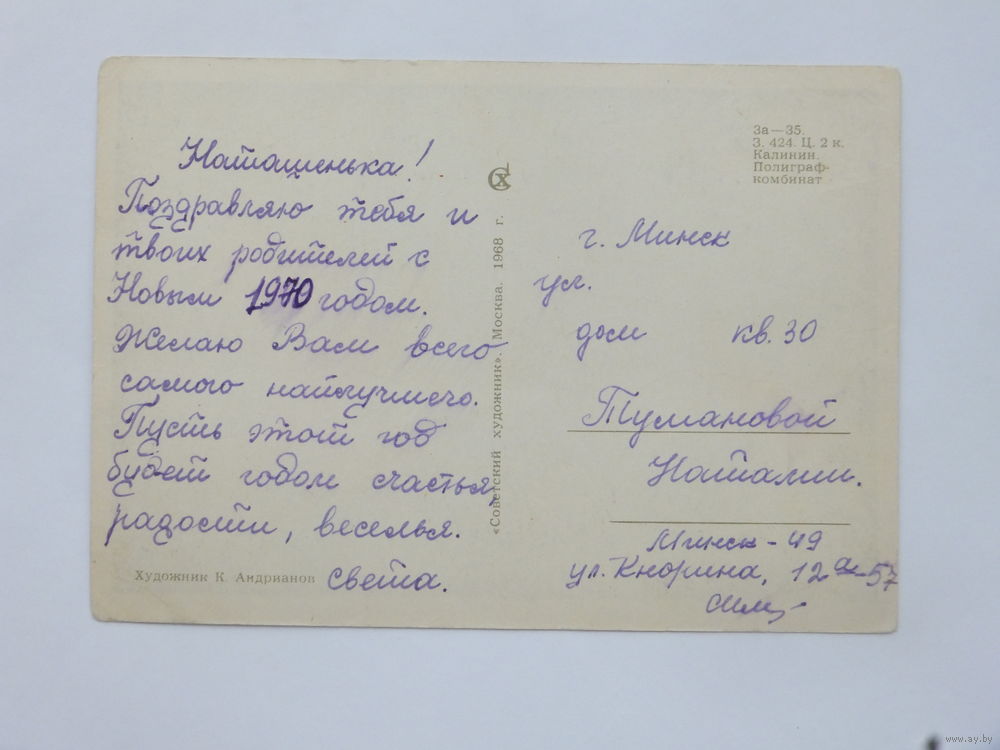 Наташенька!
Поздравляю тебя и
твоих родителей с
Новым 1970 годом.
Желаю Вам всего
самого найлучшего.
Пусть этот год
будет годом счастья,
радости, веселья.
Света.
Художник К. Андрианов
«Советский художник». Москва. 1968 г.
СХ
За—35.
З. 424. Ц. 2 к.
Калинин.
Полиграф-
комбинат
г. Минск
ул.
дом кв. 30
Тумановой
Наталии.
Минск - 49
ул. Кнорина, 12а-57
www.ay.by